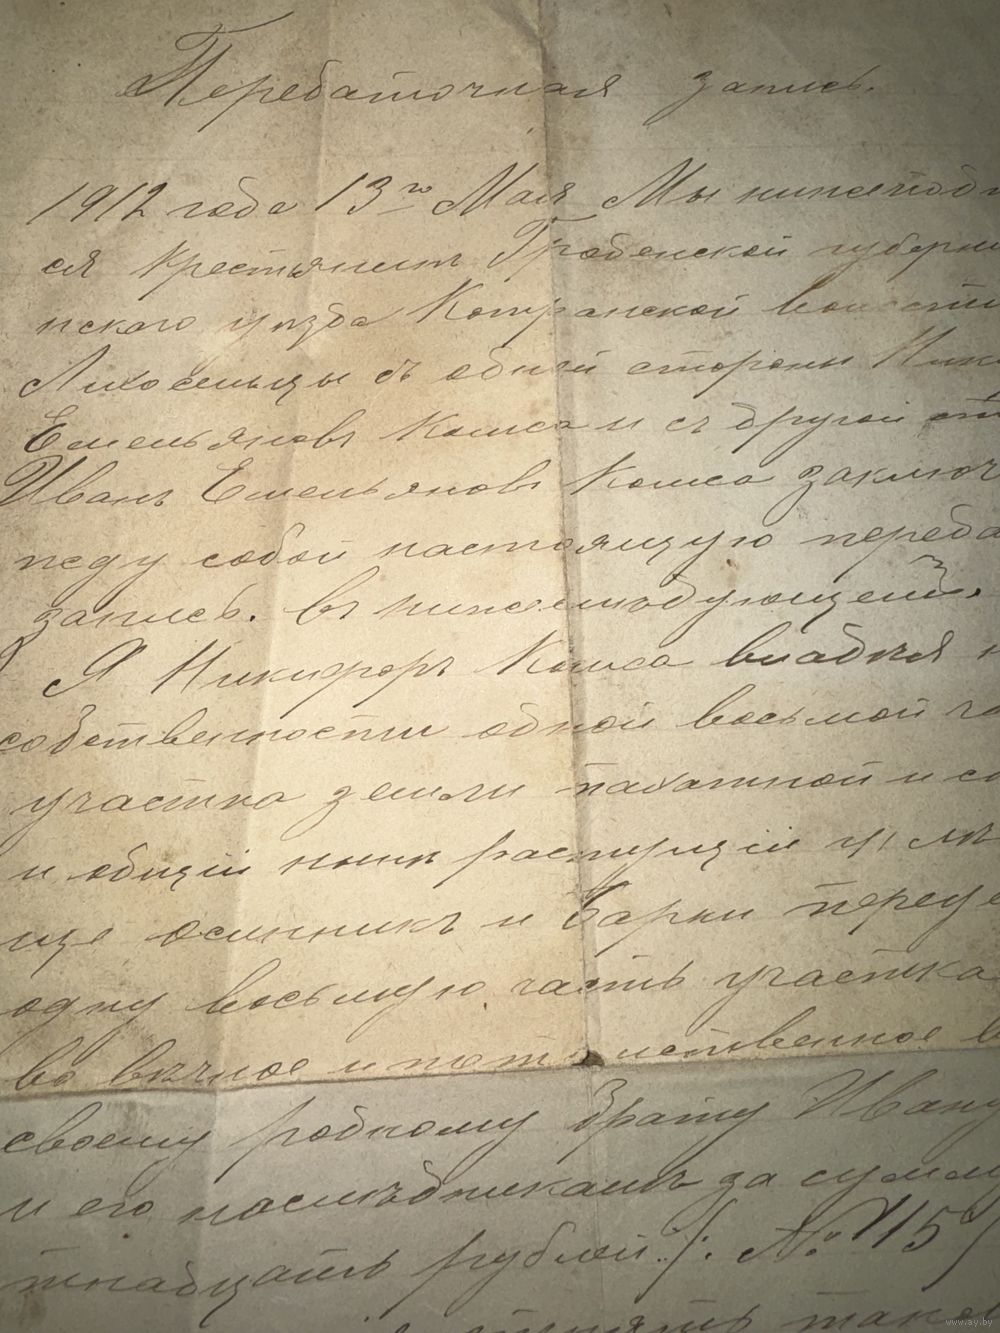 Передаточная запись.
1912 года 13го Мая Мы нижепод
ся крестьянинъ Гродненской губерни
нского уѣзда Котранской волости
Лихосельцы съ одной стороны Ник
Емельяновъ Комса и съ другой ст
Иванъ Емельяновъ Комса заключ
жду собой настоящую переда
запись. въ нижеслѣдующемъ.
Я Никифоръ Комса владѣя н
собственности одной восьмой ча
участка земли пахатной и се
и общій нынѣ растущій
ще осинникъ и переда
одну восьмую часть участка
во вѣчное и потомственное в
своему родному брату Ивану
и его наслѣдникамъ за сумму
тнадцать рублей /. №: 115
такой
www.ay.by